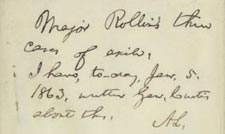 Major Rollins three
cases of exile,
I have, to-day, Jan. 5.
1863, written Gen. Curtis
about this.
A.L.